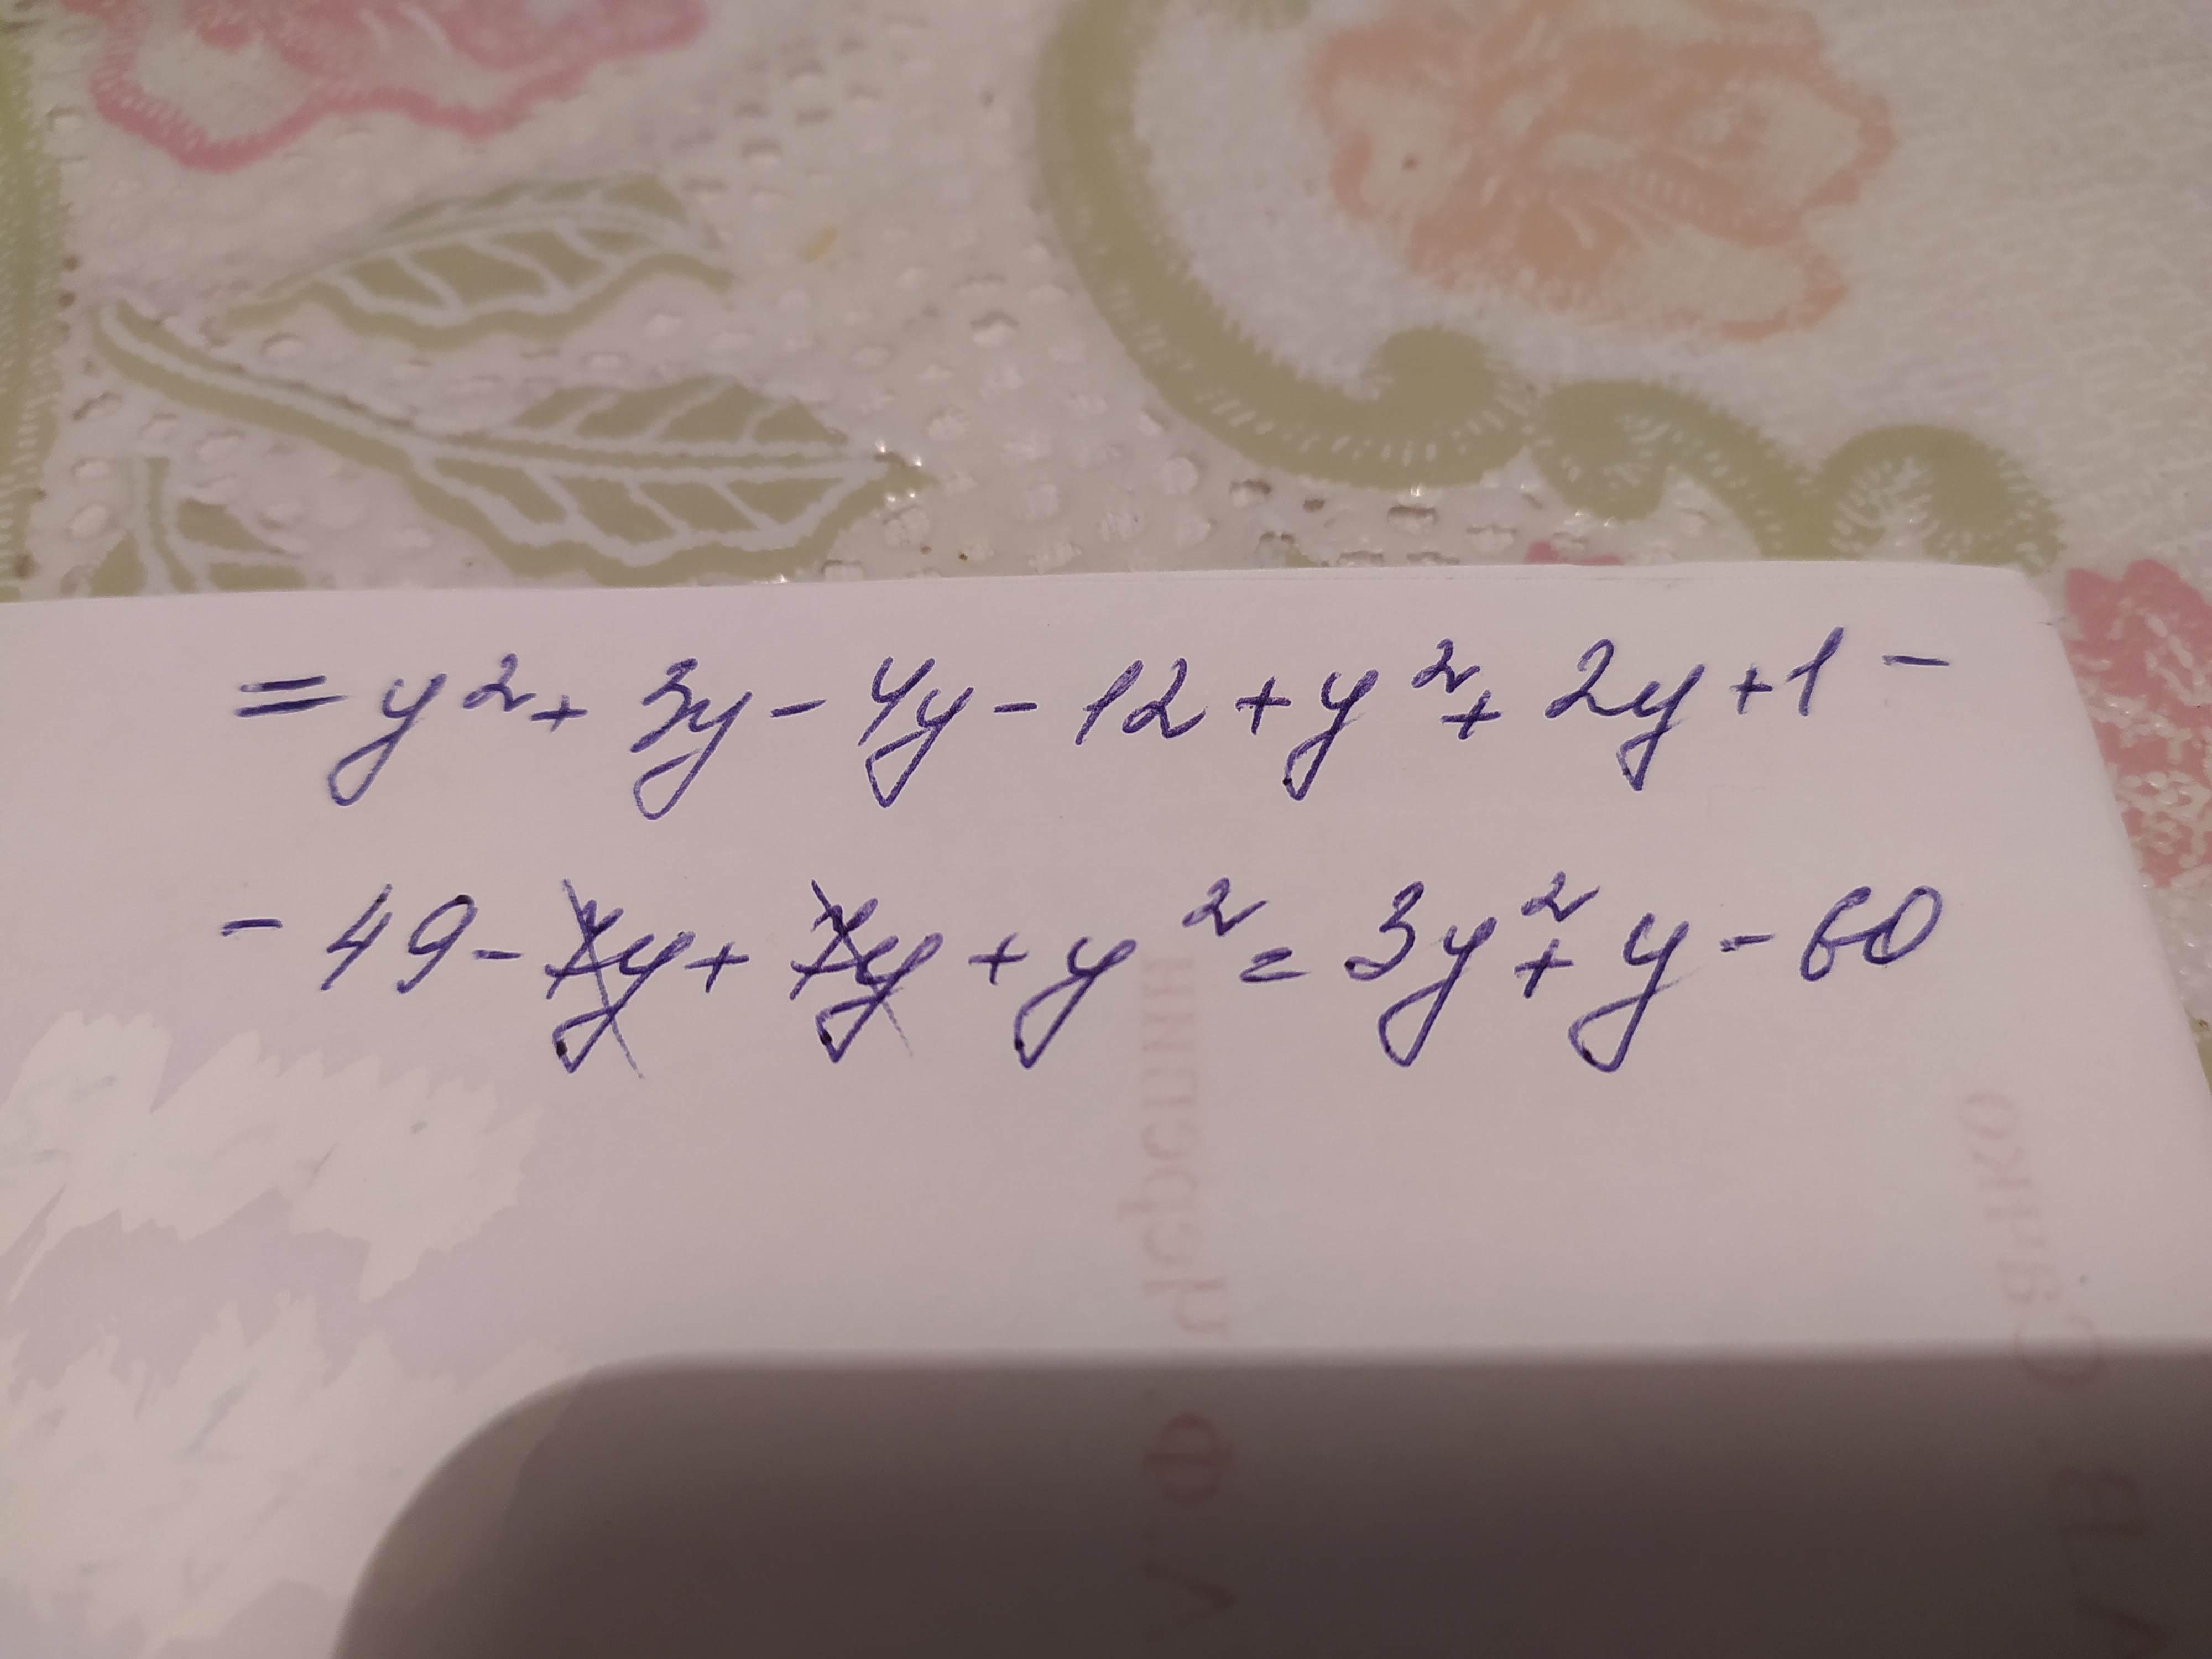 = y² + 3y - 4y - 12 + y² + 2y + 1 -
- 49 - 7y + 7y + y² = 3y² + y - 60